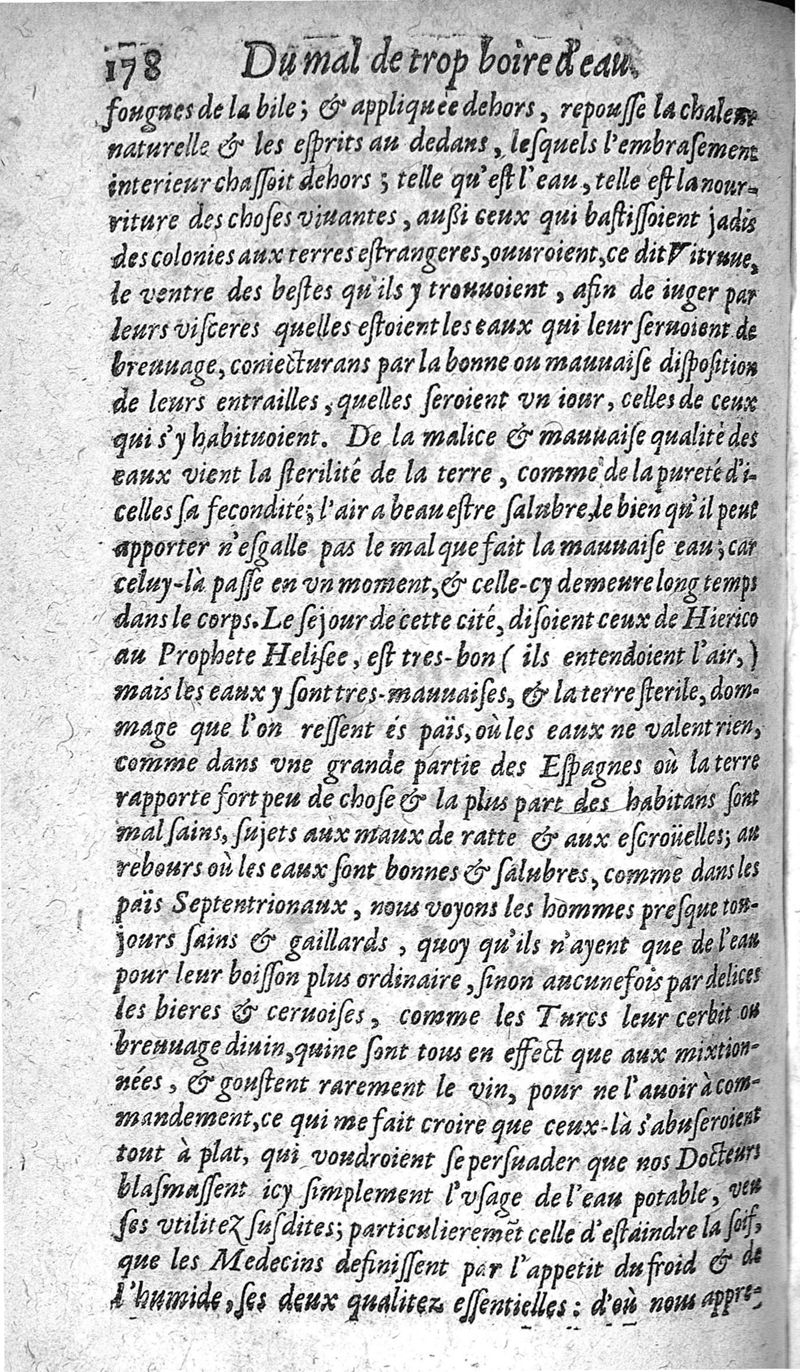 178 Du mal de trop boire d'eau.
fougues de la bile; & appliquée dehors, repousse la chaleur
naturelle & les esprits au dedans, lesquels l'embrasement
interieur chassoit dehors; telle qu'est l'eau, telle est la nour-
riture des choses viuantes, außi ceux qui bastissoient jadis
des colonies aux terres estrangeres, ouuroient, ce dit Vitruue,
le ventre des bestes qu'ils y trouuoient, afin de iuger par
leurs visceres quelles estoient les eaux qui leur seruoient de
breuuage, coniecturans par la bonne ou mauuaise disposition
de leurs entrailles, quelles seroient vn iour, celles de ceux
qui s'y habituoient. De la malice & mauuaise qualité des
eaux vient la sterilité de la terre, comme de la pureté d'i-
celles sa fecondité; l'air a beau estre salubre, le bien qu'il peut
apporter n'esgalle pas le mal que fait la mauuaise eau; car
celuy-là passe en vn moment, & celle-cy demeure long temps
dans le corps. Le sejour de cette cité, disoient ceux de Hierico
au Prophete Helisee, est tres-bon ( ils entendoient l'air, )
mais les eaux y sont tres-mauuaises, & la terre sterile, dom-
mage que l'on ressent és païs, où les eaux ne valent rien,
comme dans vne grande partie des Espagnes où la terre
rapporte fort peu de chose & la plus part des habitans sont
mal sains, sujets aux maux de ratte & aux escroüelles; au
rebours où les eaux sont bonnes & salubres, comme dans les
païs Septentrionaux, nous voyons les hommes presque tou-
jours sains & gaillards, quoy qu'ils n'ayent que de l'eau
pour leur boisson plus ordinaire, sinon aucunefois par delices
les bieres & ceruoises, comme les Turcs leur cerbit ou
breuuage diuin, qui ne sont tous en effect que aux mixtion-
nées, & goustent rarement le vin, pour ne l'auoir à com-
mandement, ce qui me fait croire que ceux-là s'abuseroient
tout à plat, qui voudroient se persuader que nos Docteurs
blasmassent icy simplement l'vsage de l'eau potable, veu
ses vtilitez susdites; particulieremẽt celle d'estaindre la soif,
que les Medecins definissent par l'appetit du froid & de
l'humide, ses deux qualitez essentielles: d'où nous appre-